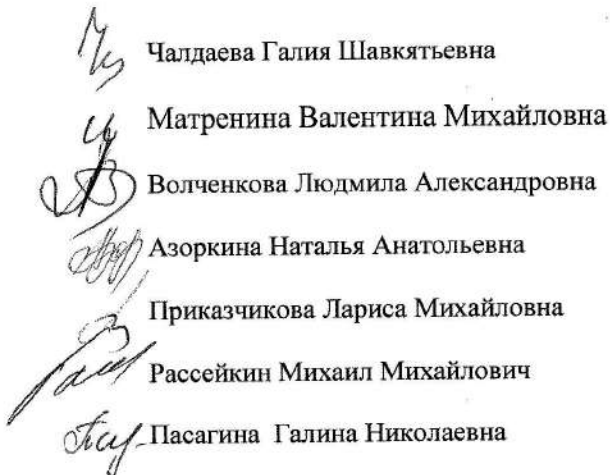 Чалдаева Галия Шавкятьевна
Матренина Валентина Михайловна
Волченкова Людмила Александровна
Азоркина Наталья Анатольевна
Приказчикова Лариса Михайловна
Рассейкин Михаил Михайлович
Пасагина Галина Николаевна